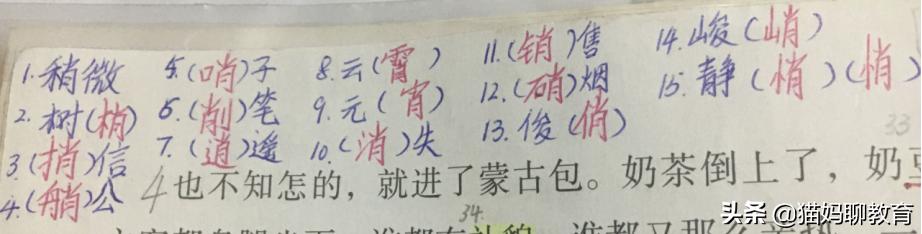 1.稍微
2.树(梢)
3.(捎)信
4.(艄)公
5.(哨)子
6.(削)笔
7.(逍)遥
8.云(霄)
9.元(宵)
10.(消)失
11.(销)售
12.(硝)烟
13.俊(俏)
14.峻(峭)
15.静(悄)(悄)
33
4也不知怎的，就进了蒙古包。奶茶倒上了，奶豆
34.
头条@猫妈聊教育